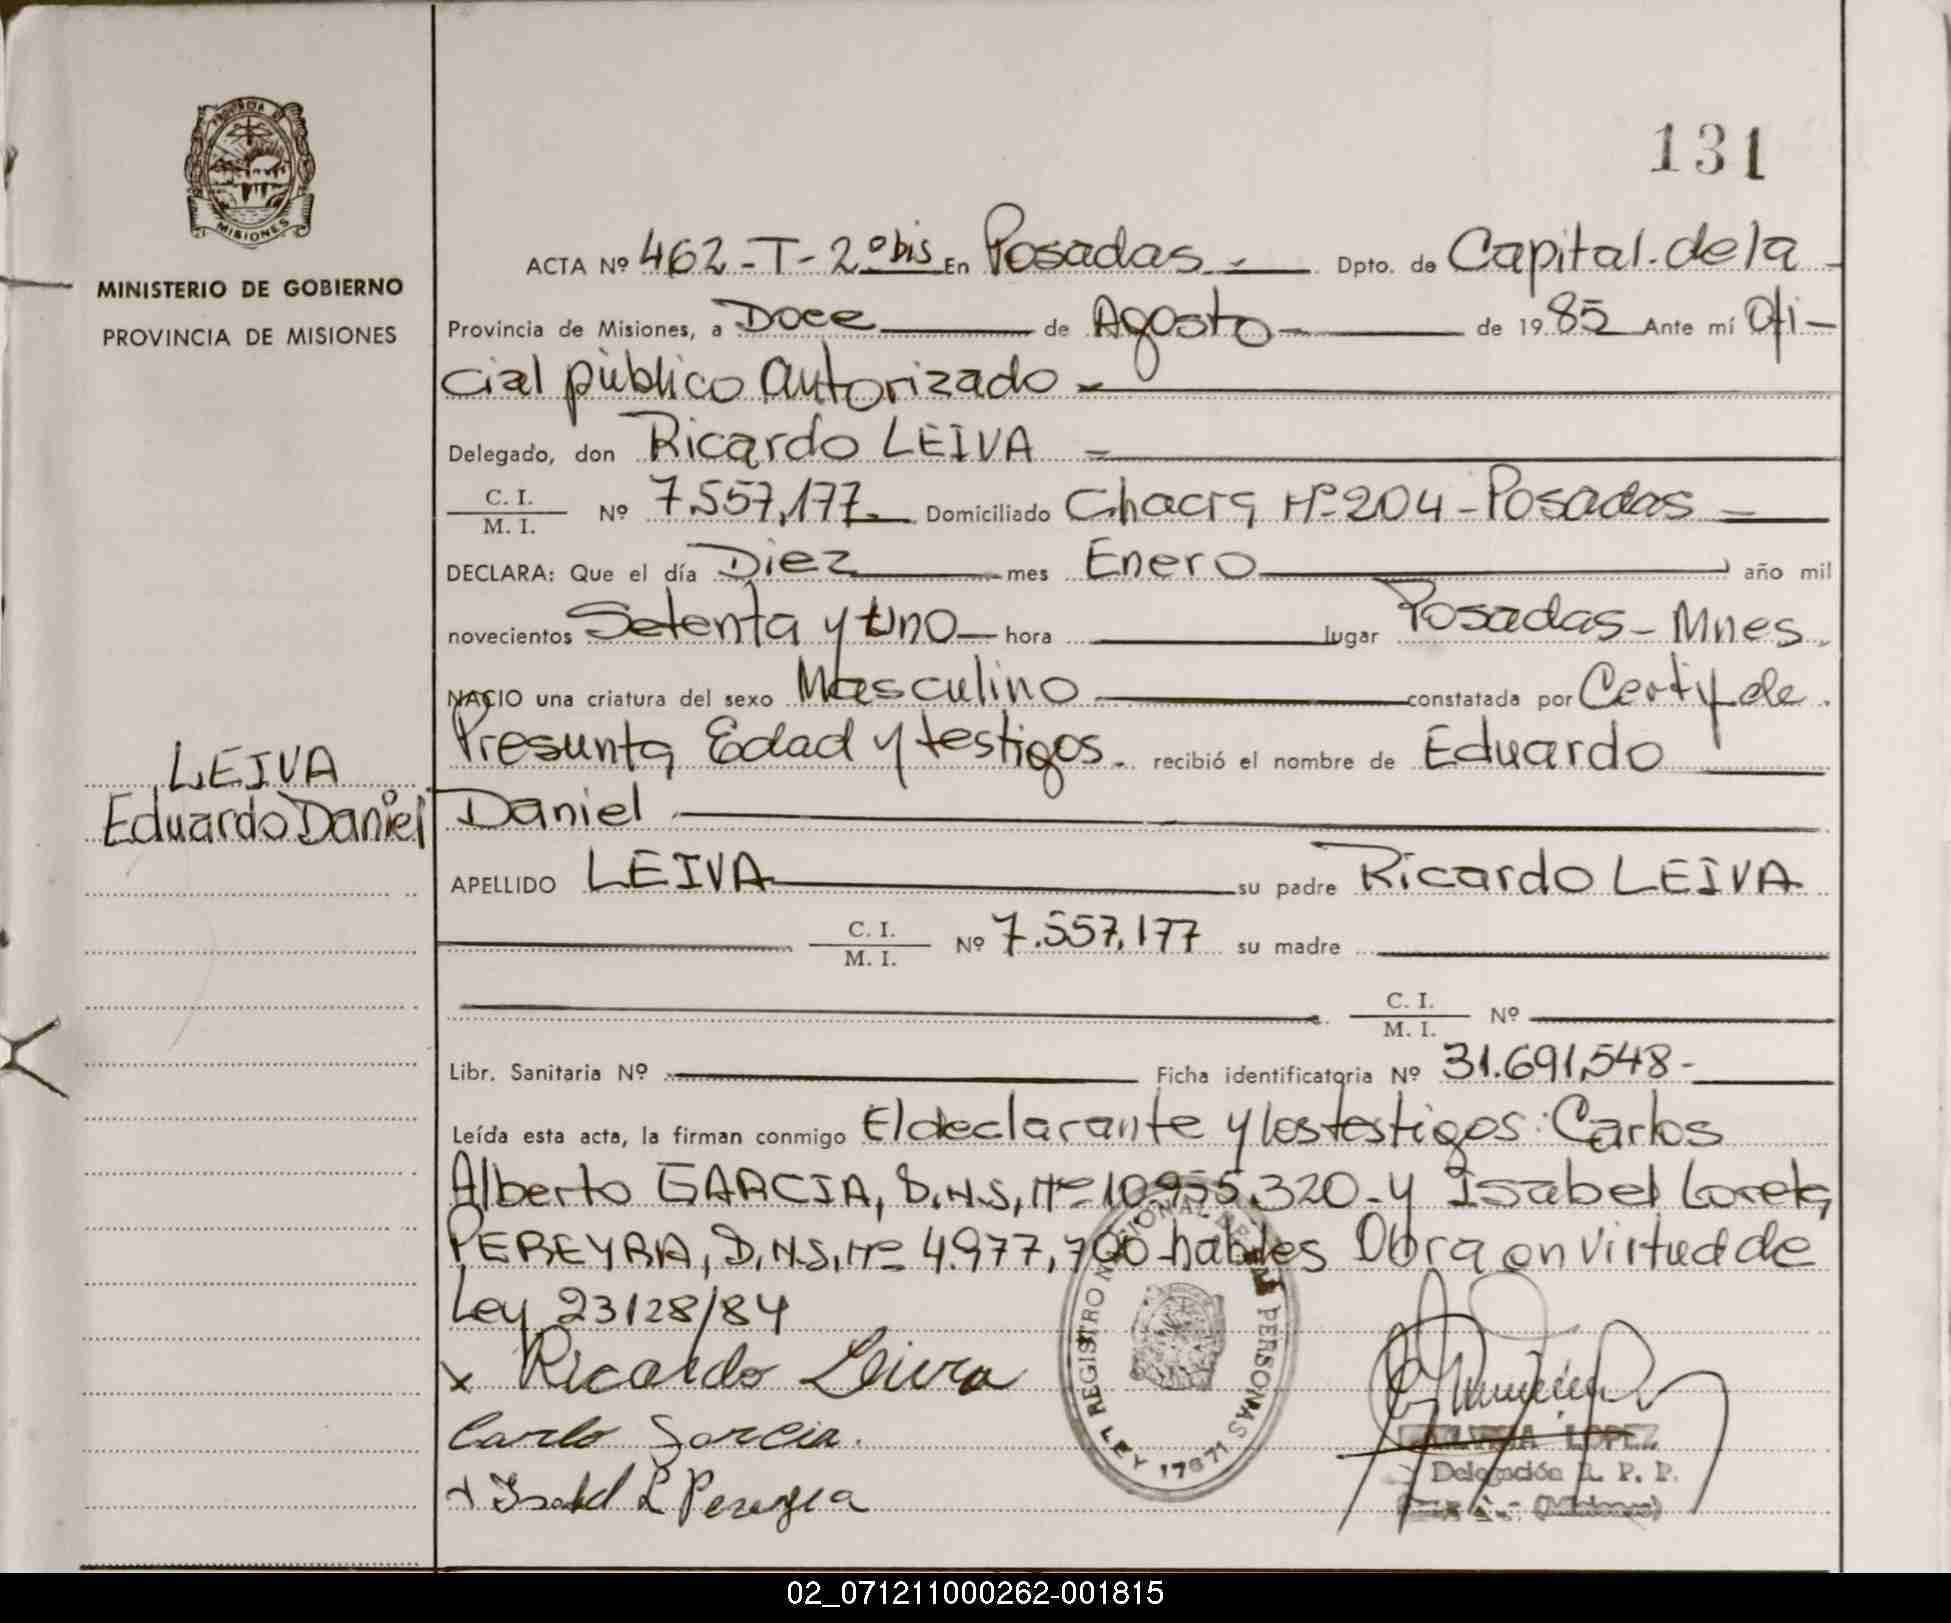 131
PROVINCIA DE
MISIONES
MINISTERIO DE GOBIERNO
PROVINCIA DE MISIONES
LEIVA
Eduardo Daniel
ACTA Nº 462-T-2º bis En Posadas Dpto. de Capital. de la
Provincia de Misiones, a Doce de Agosto de 1985 Ante mí Ofi-
cial público Autorizado
Delegado, don Ricardo LEIVA
C. I. / M. I. Nº 7.557,177 Domiciliado Chacra Nº 204 - Posadas
DECLARA: Que el día Diez mes Enero año mil
novecientos Setenta y Uno hora lugar Posadas - Mnes
NACIO una criatura del sexo Masculino constatada por Certif de
Presunta Edad y testigos. recibió el nombre de Eduardo
Daniel
APELLIDO LEIVA su padre Ricardo LEIVA
C. I. / M. I. Nº 7.557,177 su madre
C. I. / M. I. Nº
Libr. Sanitaria Nº Ficha identificatoria Nº 31.691,548-
Leída esta acta, la firman conmigo El declarante y los testigos: Carlos
Alberto GARCIA, D.N.S, Nº 10.955.320 - y Isabel Loreta
PEREYRA, D.N.S, Nº 4.977,700 habiles Obra en virtud de
Ley 23128/84
x Ricardo Leiva
Carlo Garcia.
Isabel L Pereyra
REGISTRO NACIONAL DE LAS PERSONAS
LEY 17671
LOPEZ
Delegación R. P. P.
(Misiones)
02_071211000262-001815